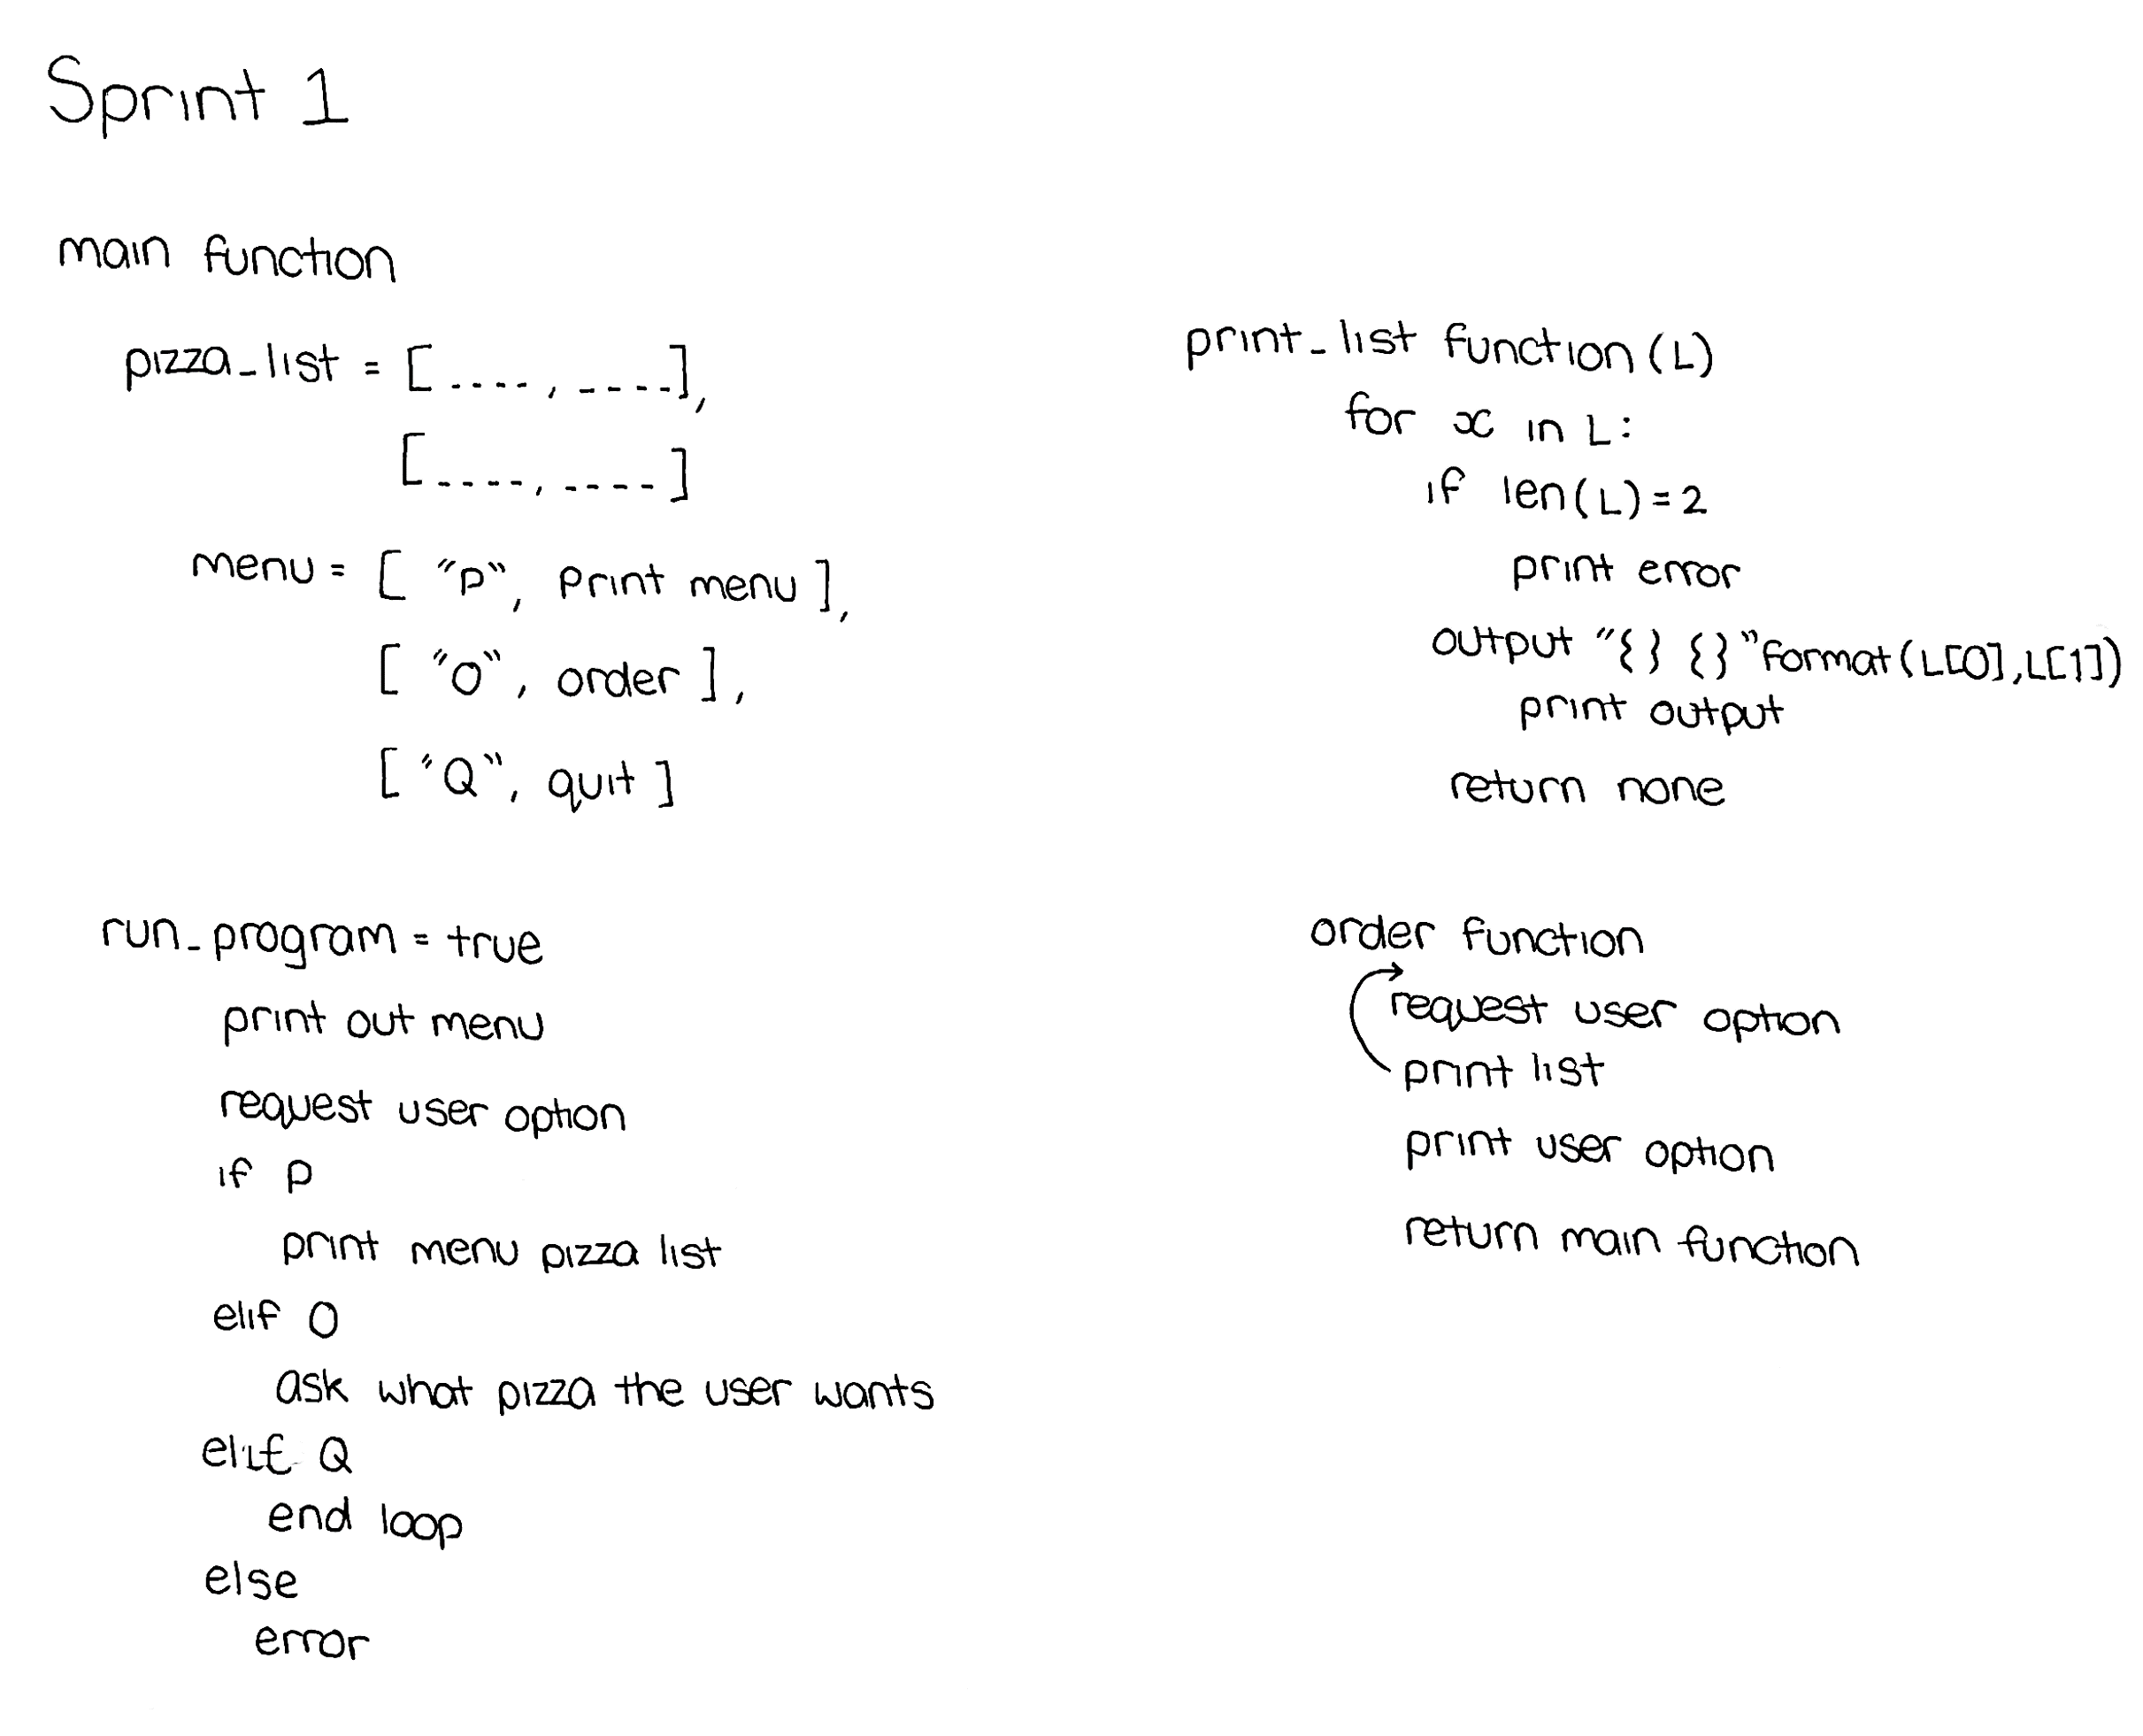 Sprint 1
main function
pizza_list = [ ----, ----],
[----, ----]
menu = [ "P", Print menu ],
[ "O", order ],
[ "Q", quit ]
run_program = true
print out menu
request user option
if P
print menu pizza list
elif O
ask what pizza the user wants
elif Q
end loop
else
error
print_list function (L)
for x in L:
if len(L) = 2
print error
output "{ } { }" format (L[0], L[1])
print output
return none
order function
request user option
print list
print user option
return main function